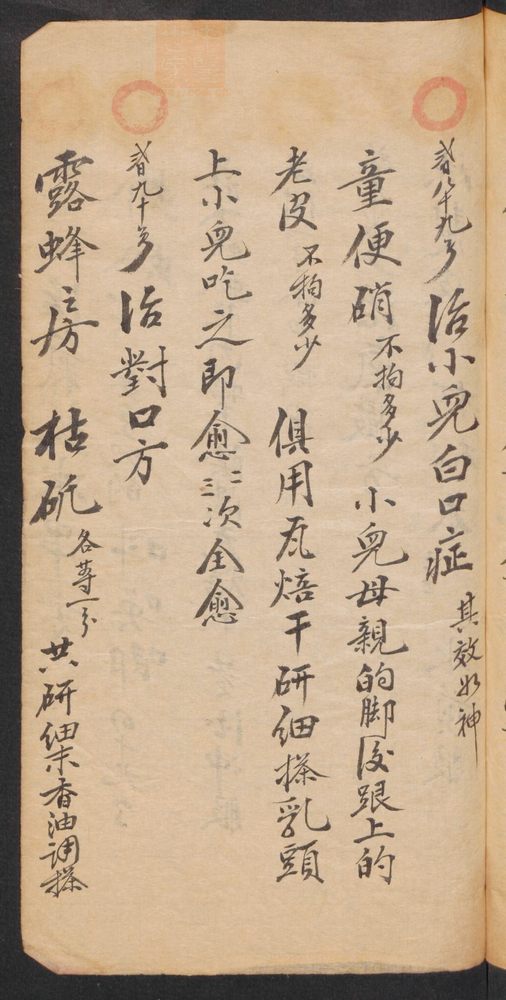 八十九 治小兒白口症 其效如神
童便硝 不拘多少 小兒母親的脚後跟上的
老皮 不拘多少 俱用瓦焙干研细搽乳頭
上小兒吃之即愈 二三次全愈
九十 治對口方
露蜂房 枯矾 各等一分 共研细末香油调搽